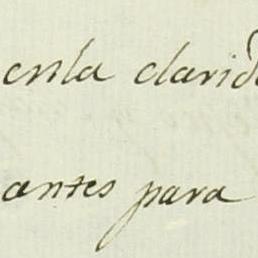 en la clarid
antes para